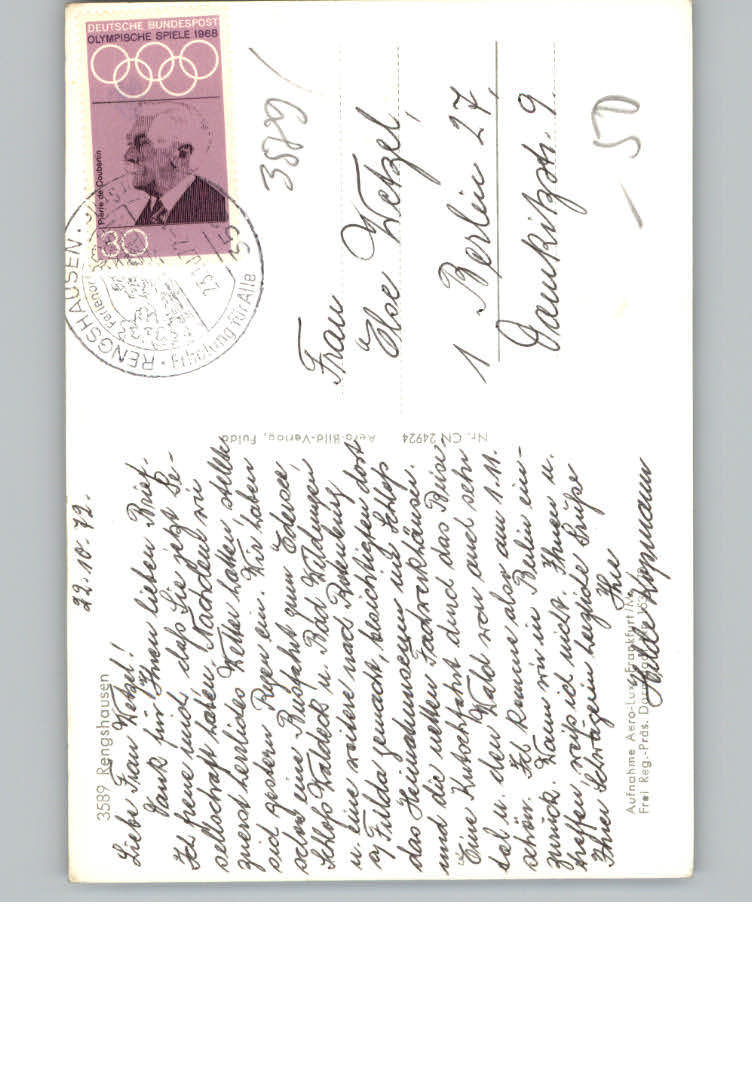 3589 Rengshausen
22.10.72.
Liebe Frau Wetzel!
Dank für Ihren lieben Brief.
Ich freue mich, daß Sie jetzt Ge-
sellschaft haben. Nachdem wir
zuerst herrliches Wetter hatten stellte
sich gestern Regen ein. Wir haben
schon eine Busfahrt zum Edersee,
Schloß Waldeck u. Bad Wildungen
u. eine weitere nach Rotenburg
a/Fulda gemacht, besichtigten dort
das Heimatmuseum und Schloß
und die netten Fachwerkhäuser.
Eine Kutschfahrt durch das Beise-
tal u. den Wald war auch sehr
schön. Ich komme also am 1.11.
zurück. Wann wir in Berlin ein-
treffen weiß ich nicht. Ihnen u.
Ihrer Schwägerin herzliche Grüße
Ihre
Aufnahme Aero-Lux, Frankfurt/M.
Frei Reg.-Präs.
Nr. CN 24924 Aero-Bild-Verlag, Fulda
DEUTSCHE BUNDESPOST
OLYMPISCHE SPIELE 1968
Pierre de Coubertin
30
RENGSHAUSEN
Ferienort
Erholung für Alle
3579/
Frau
Else Wetzel,
1 Berlin 27,
9.
50